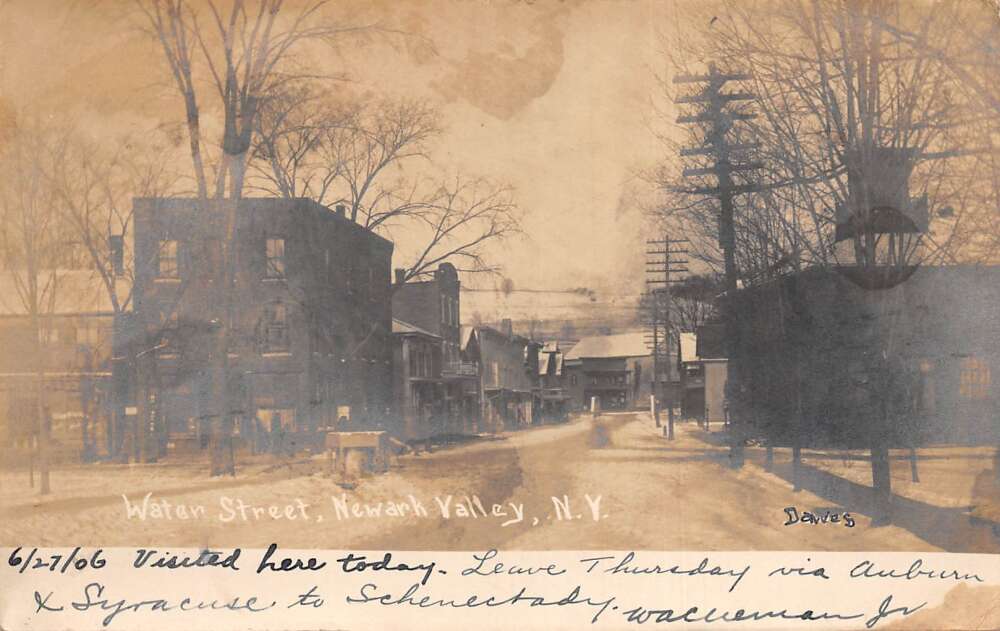 Water Street, Newark Valley, N.Y.
Dawes
6/27/06 Visited here today. Leave Thursday via Auburn
& Syracuse to Schenectady.
Jr